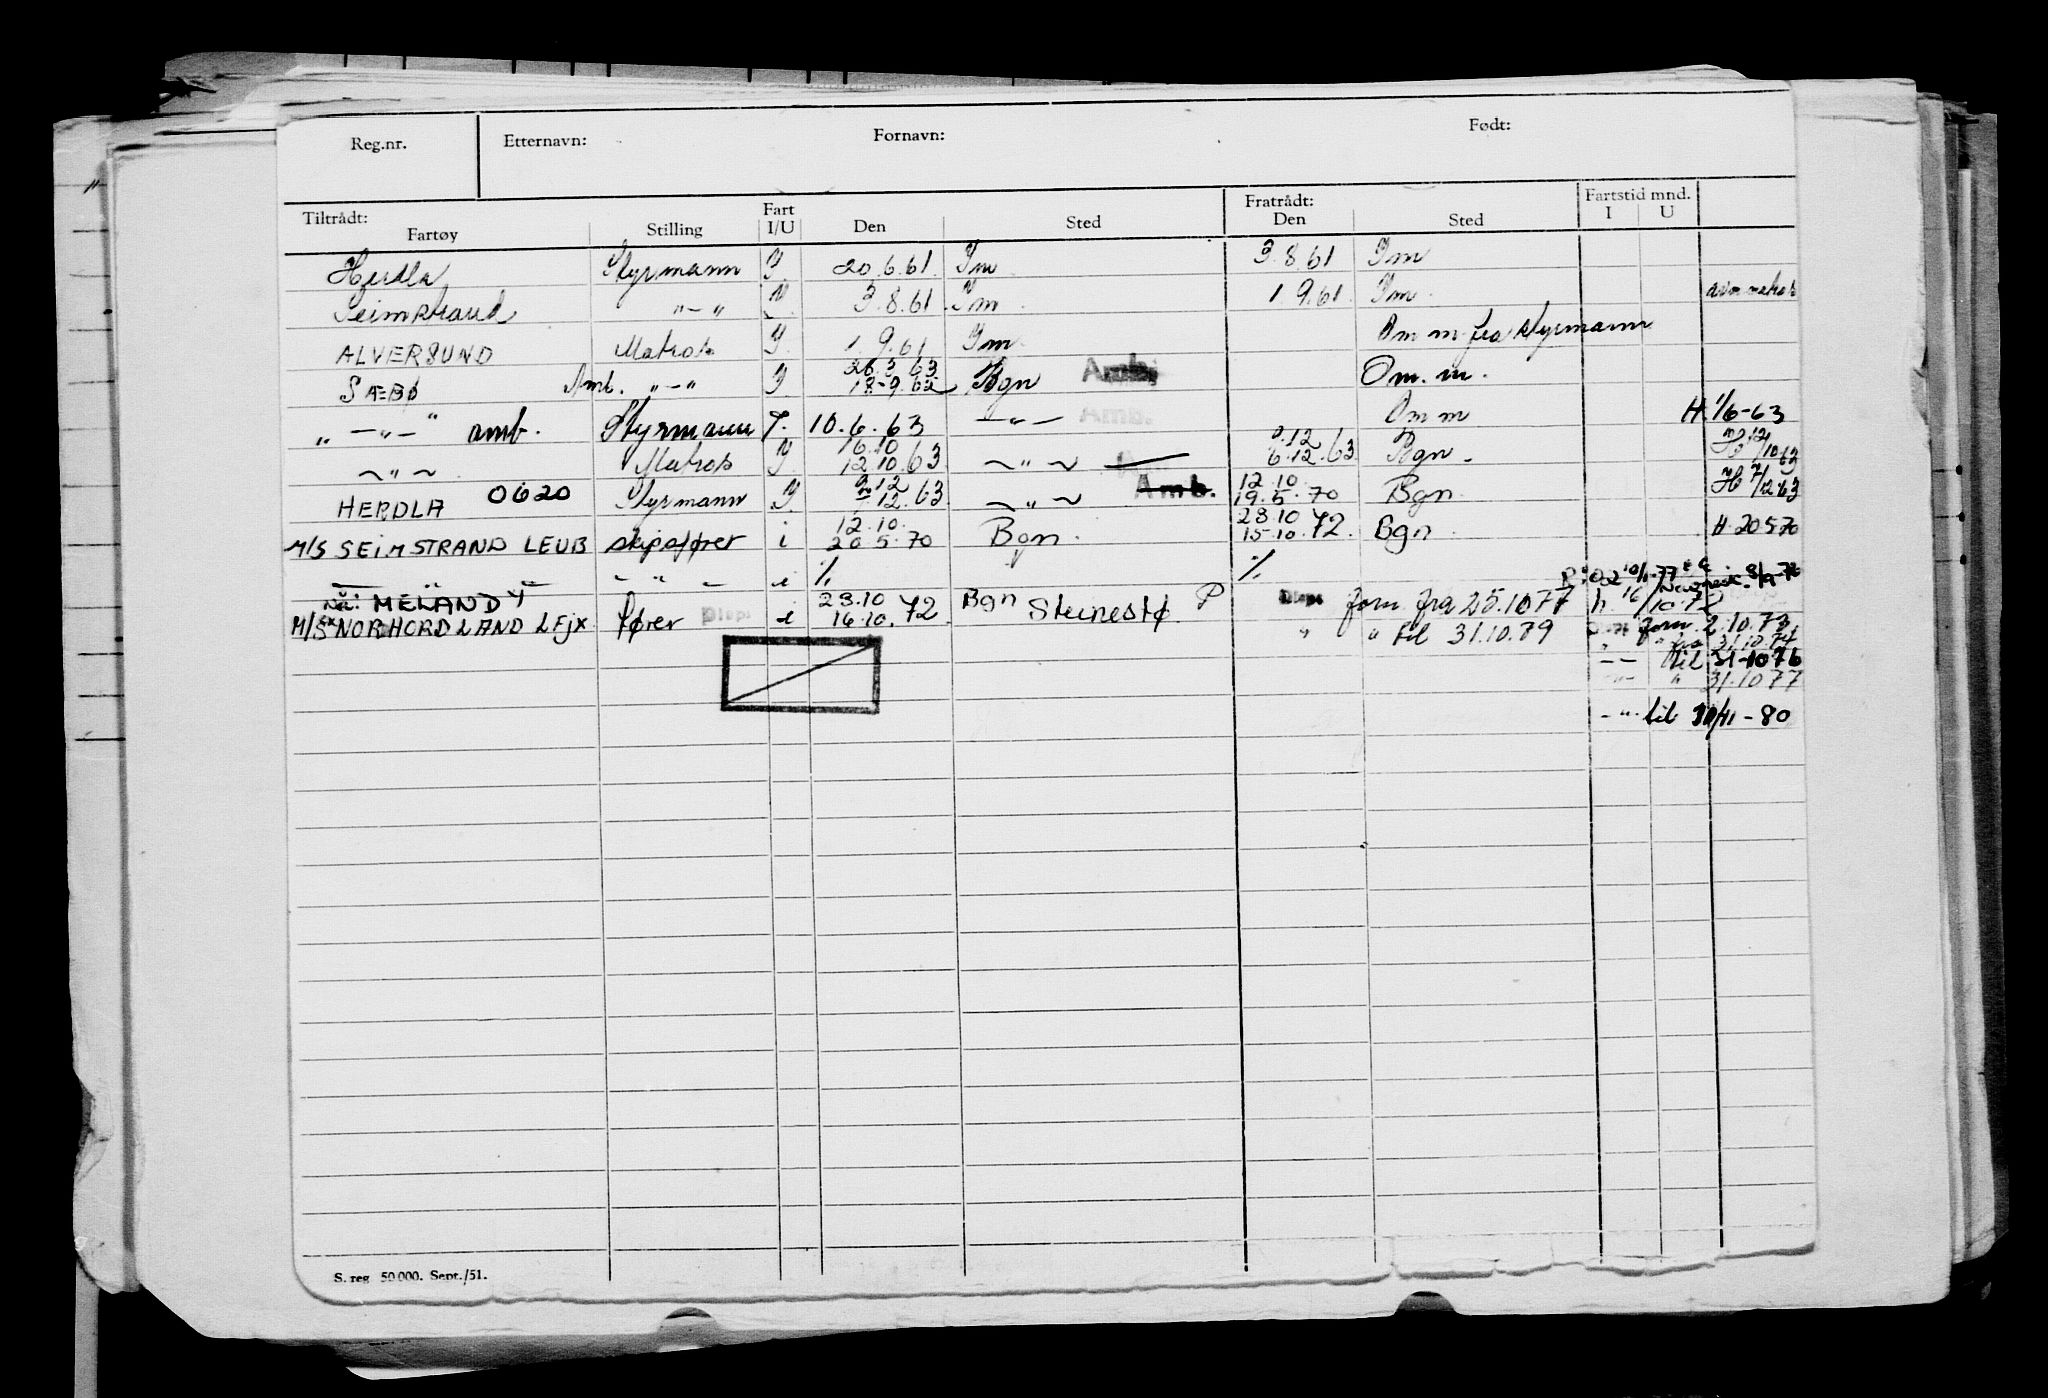 Reg.nr. Etternavn: Fornavn: Født:
Tiltrådt: Fart Fratrådt: Fartstid mnd.
Fartøy Stilling I/U Den Sted Den Sted I U
Herdla Styrmann I 20.6.61 Im 3.8.61 Im
Seimstrand "—" 3.8.61 Im 1.9.61 Im
ALVERSUND Matros I 1.9.61 Im Om m fra styrmann
26.3.63
SÆBØ Amb. "—" I 18-9.62 Bgn Amb. Om. m.
" —"— " amb. Styrmann I. 10.6.63 —"— Amb. Om m H. 1/6-63
16.10
~ " ~ Matros I 12.10.63 ~ " ~ 6.12.63 Bgn.
HERDLA 0620 Styrmann I 12.63 ~ " ~ Amb. 12.10 19.5.70 Bgn H 7/12 63
12.10. 23.10
M/S SEIMSTRAND LEUB skipsfører i 20.5.70 Bgn. 15.10.72. Bgn. H. 20570
— " — — " — i % %
Nå: MELAND I 23.10 Bgn
M/S ex NORHORDLAND LFJX fører Disp. i 16.10.72 Steinestø P Disp. forn fra 25.10 77 h 16/10.72
" " til 31.10.79 Disp. forn 2.10.73
" " fra 31.10.74
—"— til 31-1076
—"— " 31.1077
-"- til -80
S. reg 50000. Sept./51.